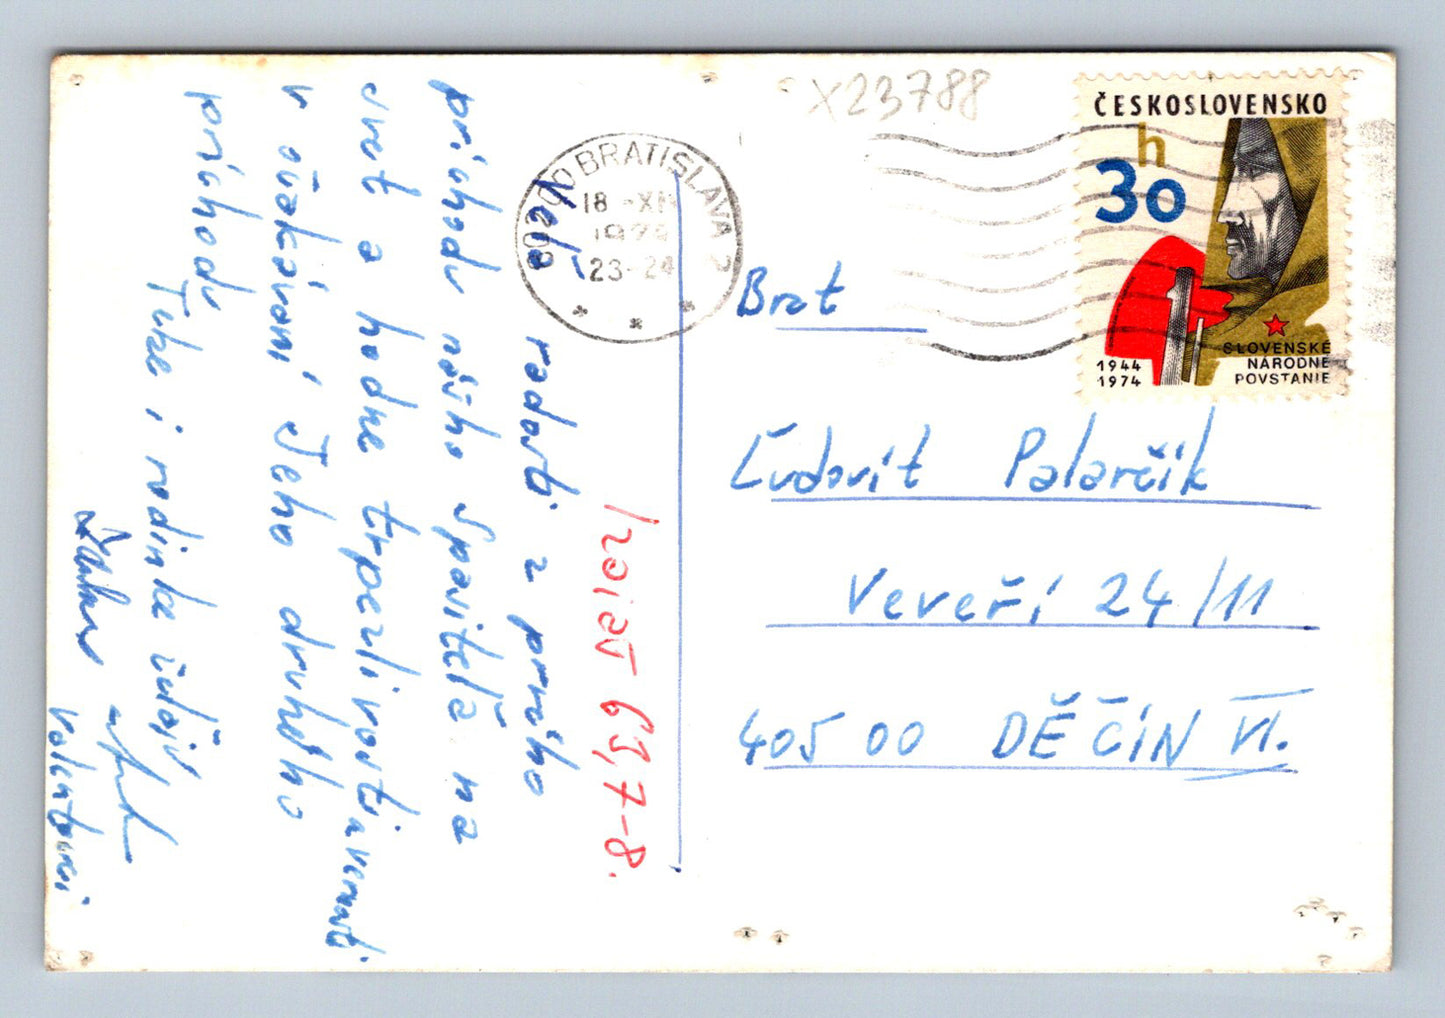 Izaiáš 65,7-8.
Veľa radosti z prvého
príchodu nášho Spasiteľa na
svet a hodne trpezlivosti a vernosti
v očakávaní Jeho druhého
príchodu
Tvke i rodinke želajú
X23788
BRATISLAVA 2
18 -XI
23-24
ČESKOSLOVENSKO
30 h
1944
1974
SLOVENSKÉ
NÁRODNÉ
POVSTANIE
Brat
Ľudovít Palarčik
Veveří 24/11
405 00 DĚČÍN VI.